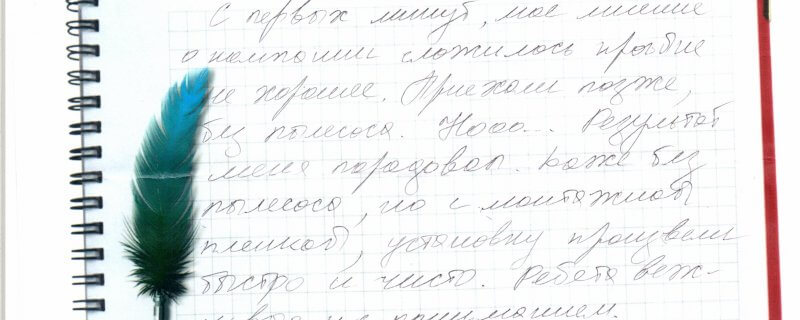 С первых минут, мое мнение
о компании сложилось крайне
не хорошее. Приехали позже,
без пылесоса. Нооо... Результат
меня порадовал. Даже без
пылесоса, но с монтажной
пленкой, установку произвели
быстро и чисто. Ребята веж-
ливые и с пониманием.